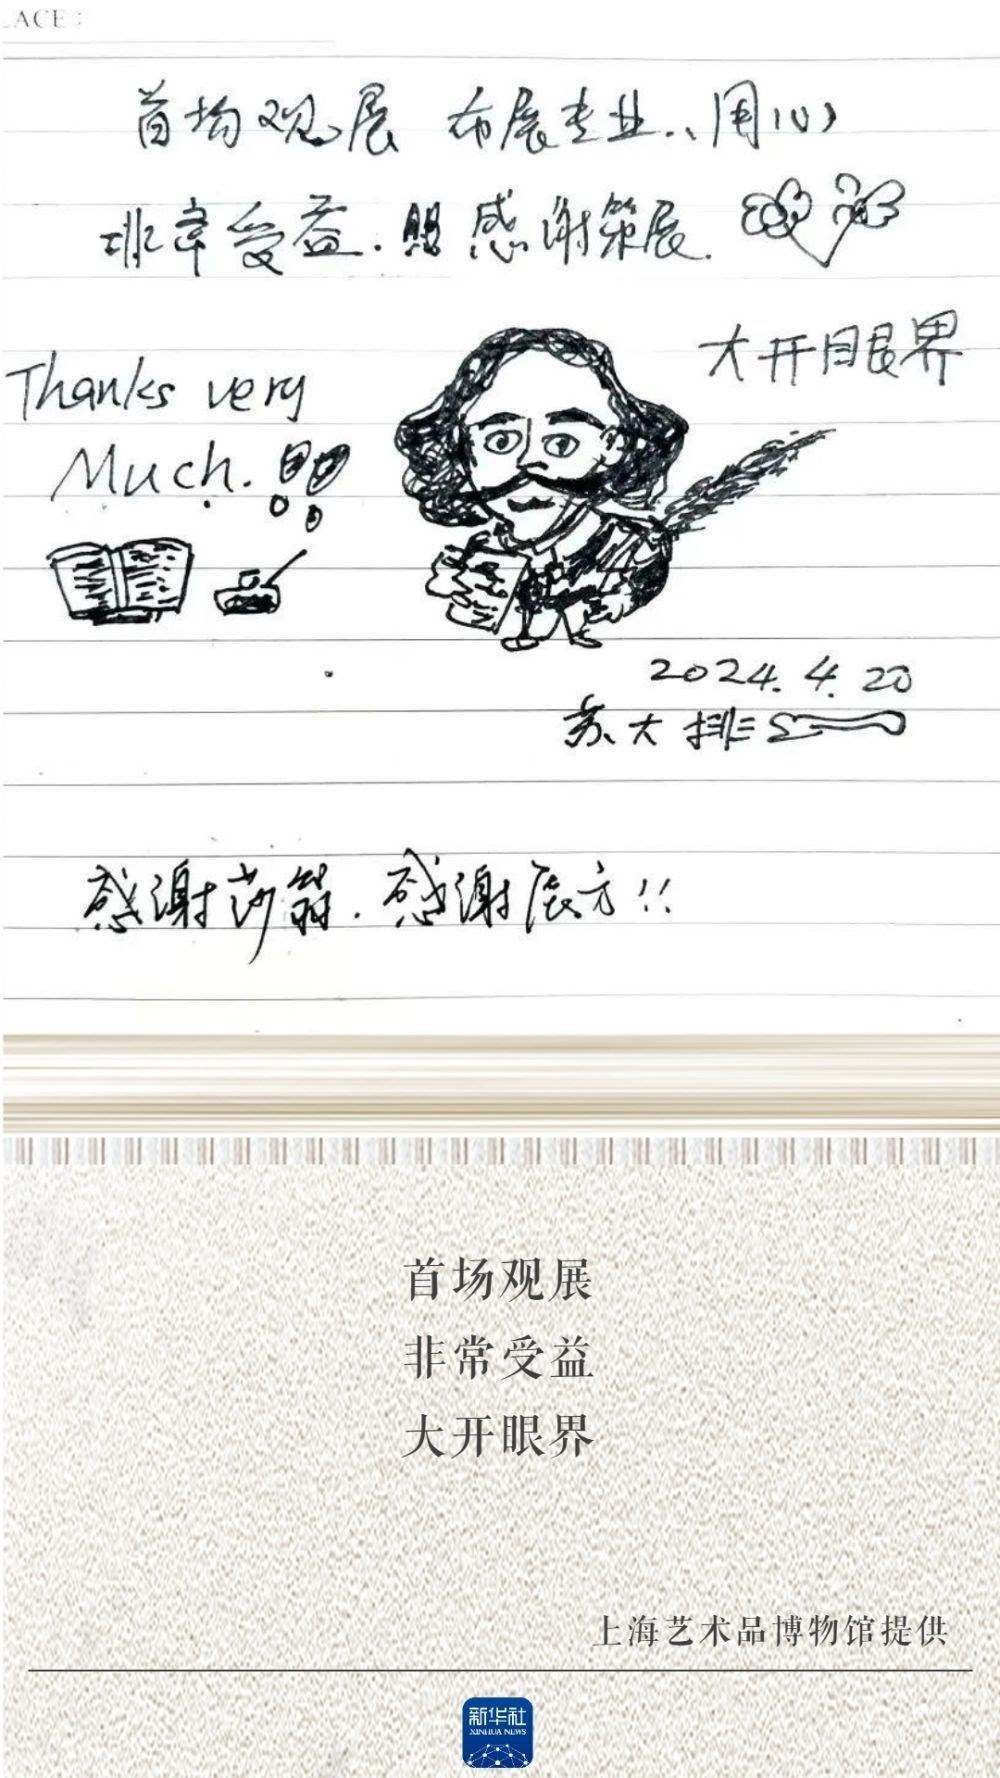 LACE:
首场观展 布展专业、用心
非常受益. 感谢策展.
大开眼界
Thanks very
Much.
2024.4.20
苏大排
感谢莎翁. 感谢展方!!
首场观展
非常受益
大开眼界
上海艺术品博物馆提供
新华社
XINHUA NEWS